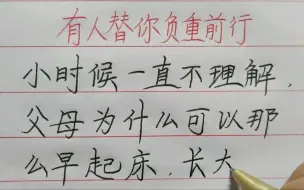 有人替你负重前行
小时候一直不理解,
父母为什么可以那
么早起床.长大